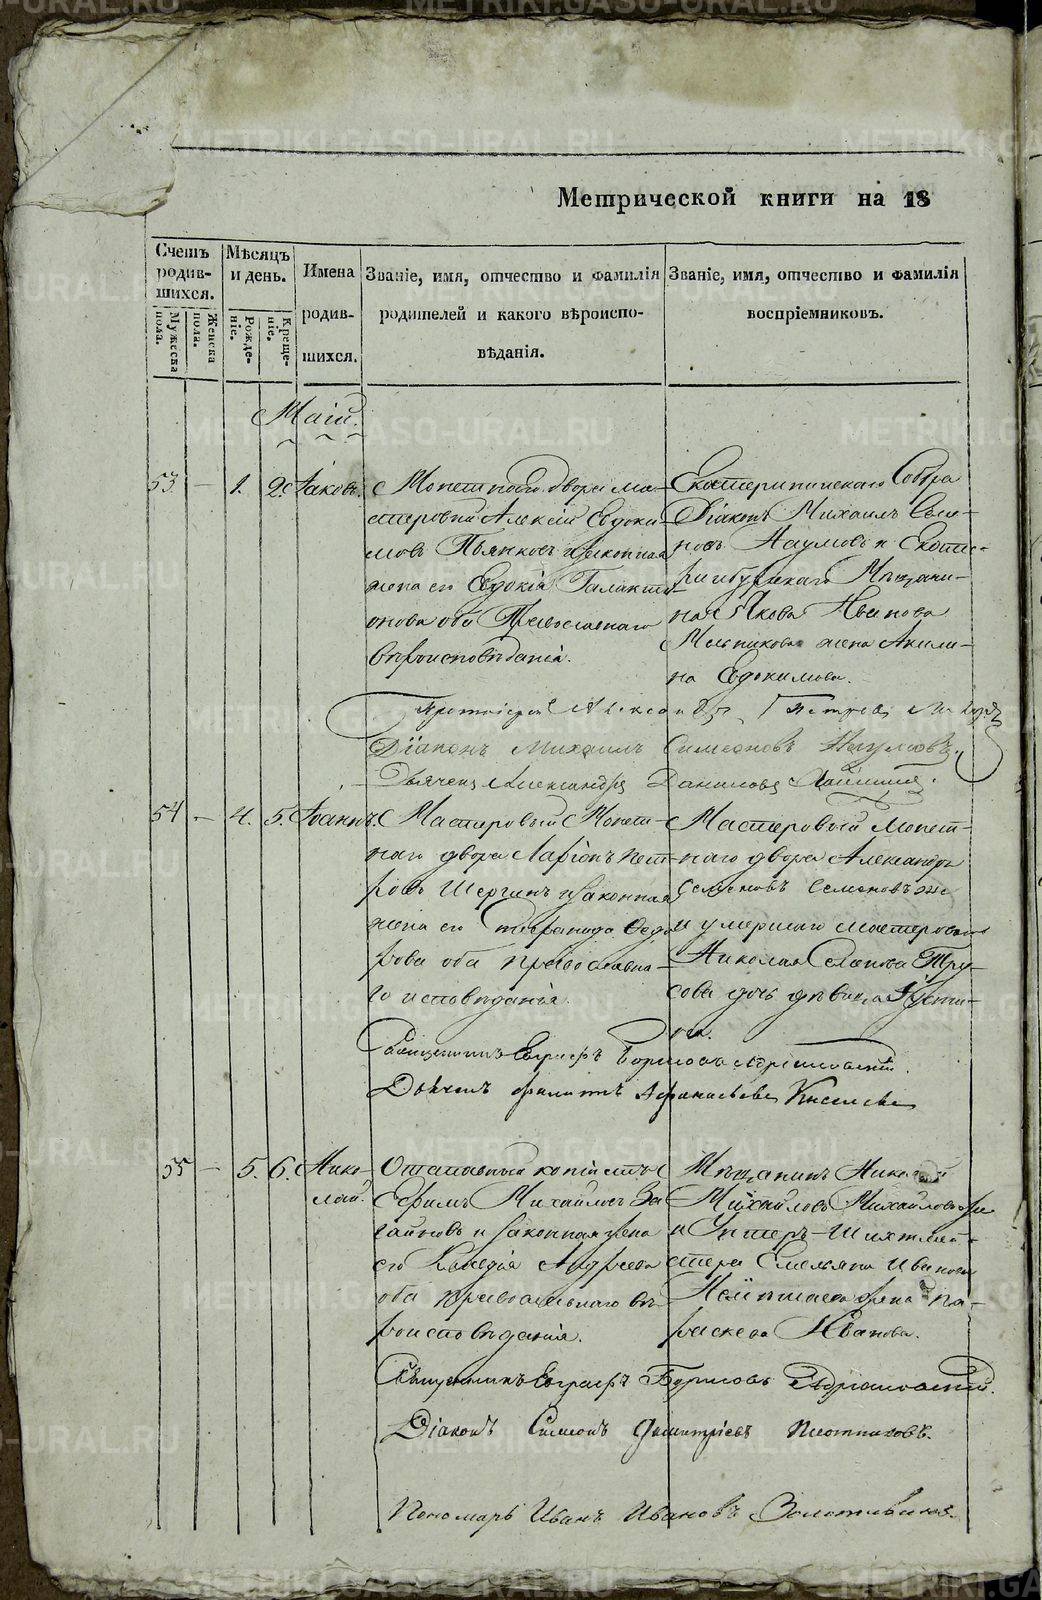 Метрической книги на 18
Счетъ родив-шихся.
Мужеска пола.
Женска пола.
Мѣсяцъ и день.
Рожде-ніе.
Креще-ніе.
Имена родив-шихся.
Званіе, имя, отчество и фамилія
родителей и какого вѣроиспо-
вѣданія.
Званіе, имя, отчество и фамилія
воспріемниковъ.
Маій.
53 — 1. 2. Іаковъ.
Монетнаго двора ма-
стеровый Алексій Евдоки-
мовъ Пьянковъ и законная
жена его Евдокія Галакти-
онова оба Православнаго
вѣроисповѣданія.
Екатерининскаго Собора
Діаконъ Михаилъ Симе-
новъ Наумовъ и Екате-
ринбургскаго Мѣщани-
на Якова Иванова
Мельникова жена Акили-
на Евдокимова.
Протоіерей Александръ Петровъ
Діаконъ Михаилъ Симеоновъ Наумовъ.
Дьячекъ Александръ Даниловъ
54 — 4. 5. Іоаннъ.
Мастеровый Монет-
наго двора Ларіонъ Пет-
ровъ Шергинъ и законная
жена его Степанида Федо-
рова оба православна-
го исповѣданія.
Мастеровый Монет-
наго двора Александръ
Семеновъ Семеновъ же
и умершаго мастероваго
Николая Семенова Тру-
сова дочь дѣвица Усти-
нья.
Священникъ Евграфъ Борисовъ Адріановскій
Дьячекъ Филиппъ Афанасьевъ Киселевъ
55 — 5. 6. Нико-
лай.
Отставный копіистъ
Ефимъ Михайловъ За-
гайновъ и законная жена
его Клавдія Андреева
оба православнаго вѣ-
роисповѣданія.
Мѣщанинъ Николай
Михайловъ Михайловъ же
и Унтеръ-Шихтмей-
стера Емельяна Иванова
жена Па-
раскева Иванова.
Священникъ Евграфъ Борисовъ Адріановскій.
Діаконъ Симеонъ Димитріевъ Плотниковъ.
Пономарь Иванъ Ивановъ Золотавинъ.
METRIKI.GASO-URAL.RU